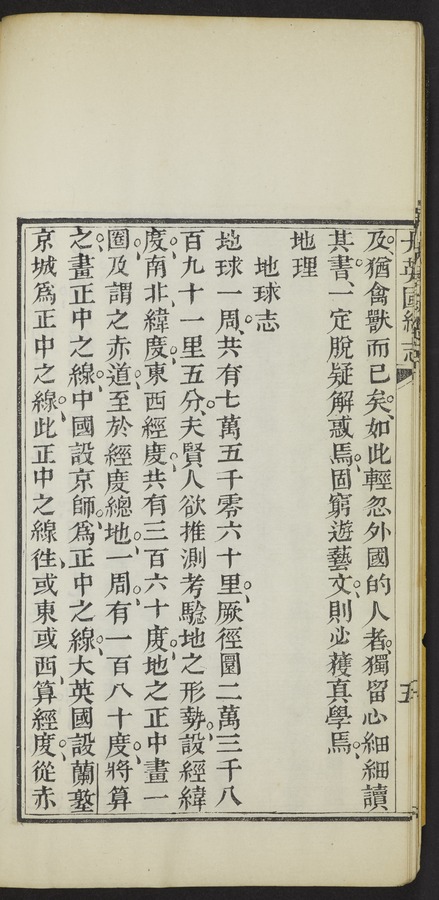 及猶禽獸而已矣、如此輕忽外國的人者、獨留心細細讀
其書、一定脫疑解惑焉、固窮遊藝文、則必穫真學焉、
地理
地球志
地球一周、共有七萬五千零六十里、厥徑圜二萬三千八
百九十一里五分、夫賢人欲推測考騐地之形勢、設經緯
度、南北緯度、東西經度共有三百六十度、地之正中畫一
圈及謂之赤道、至於經度總地一周、有一百八十度、將算
之畫正中之線、中國設京師爲正中之線、大英國設蘭墪
京城爲正中之線、此正中之線徃或東或西、算經度、從赤
五